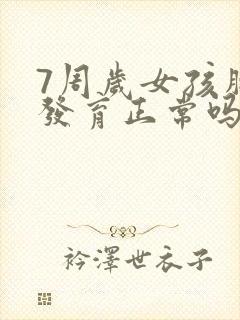 7周岁女孩胸
发育正常吗
衿澤世衣子